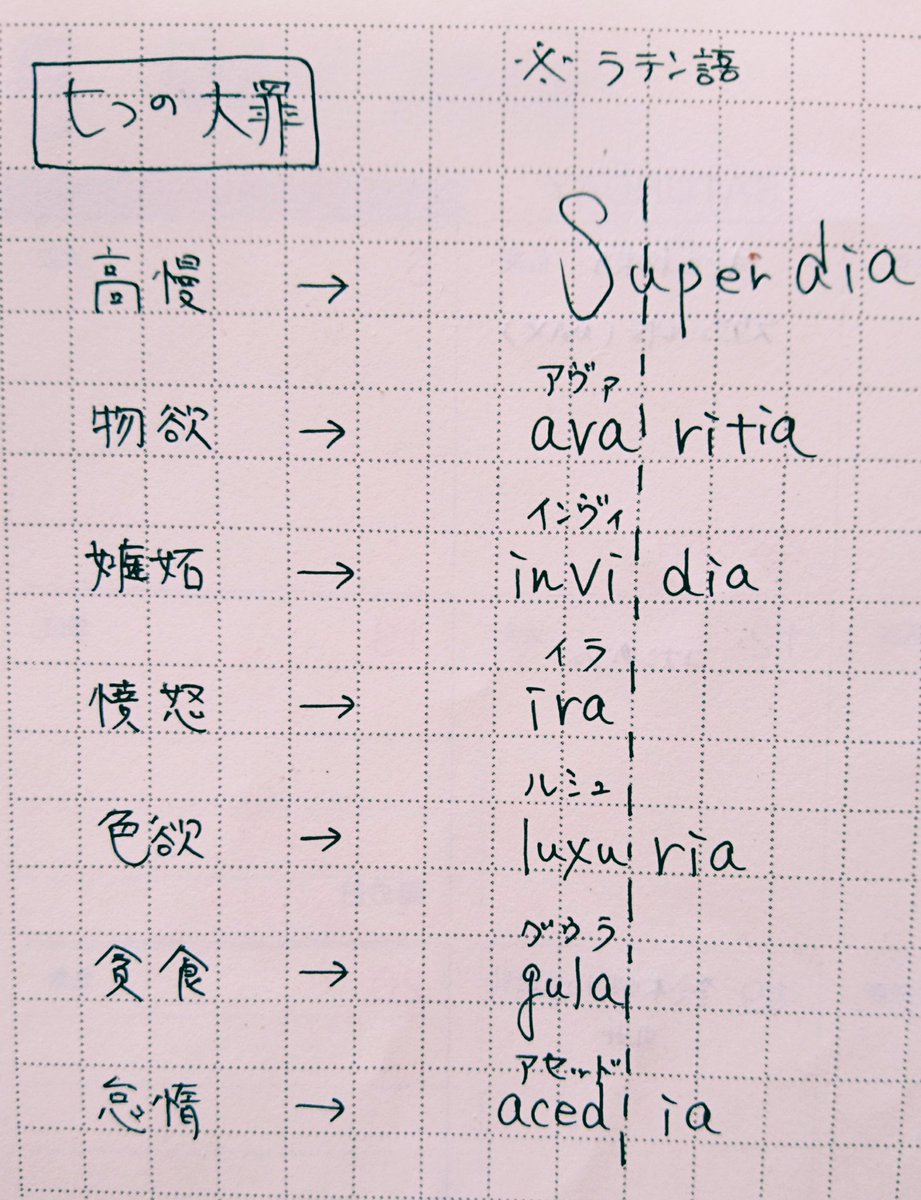 七つの大罪
※ ラテン語
高慢 → Superdia
アヴァ
物欲 → ava ritia
インヴィ
嫉妬 → invi dia
イラ
憤怒 → ira
ルシュ
色欲 → luxu ria
グゥラ
貪食 → gula
アセッド
怠惰 → aced ia